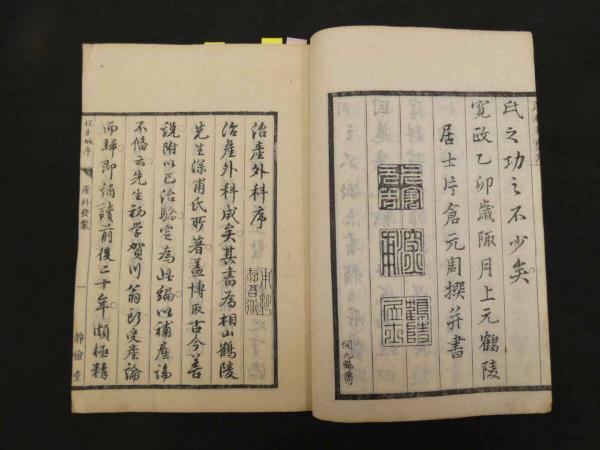 氏之功之不少矣
寛政乙卯歳陬月上元鶴陵
居士片倉元周撰并書
治産外科序
治産外科成矣其書爲相山鶴陵
先生深甫氏所著蓋博取古今善
說附以已治驗定爲此編以補産論
不備云先生初学賀川翁所受産論
而歸即誦讀前後二十年頗極精
産科發蒙
一
靜儉堂